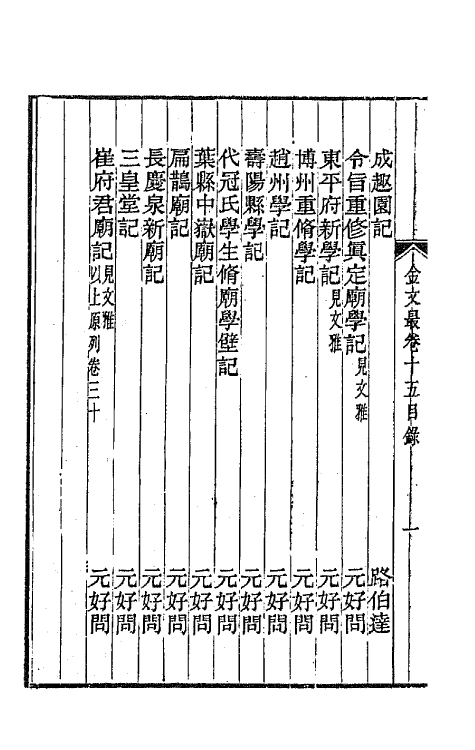 金文最卷十五目錄 一
成趣園記 路伯達
令旨重修眞定廟學記見文雅 元好問
東平府新學記見文雅 元好問
博州重脩學記 元好問
趙州學記 元好問
壽陽縣學記 元好問
代冠氏學生脩廟學壁記 元好問
葉縣中嶽廟記 元好問
扁鵲廟記 元好問
長慶泉新廟記 元好問
三皇堂記 元好問
崔府君廟記見文雅以上原列卷三十 元好問